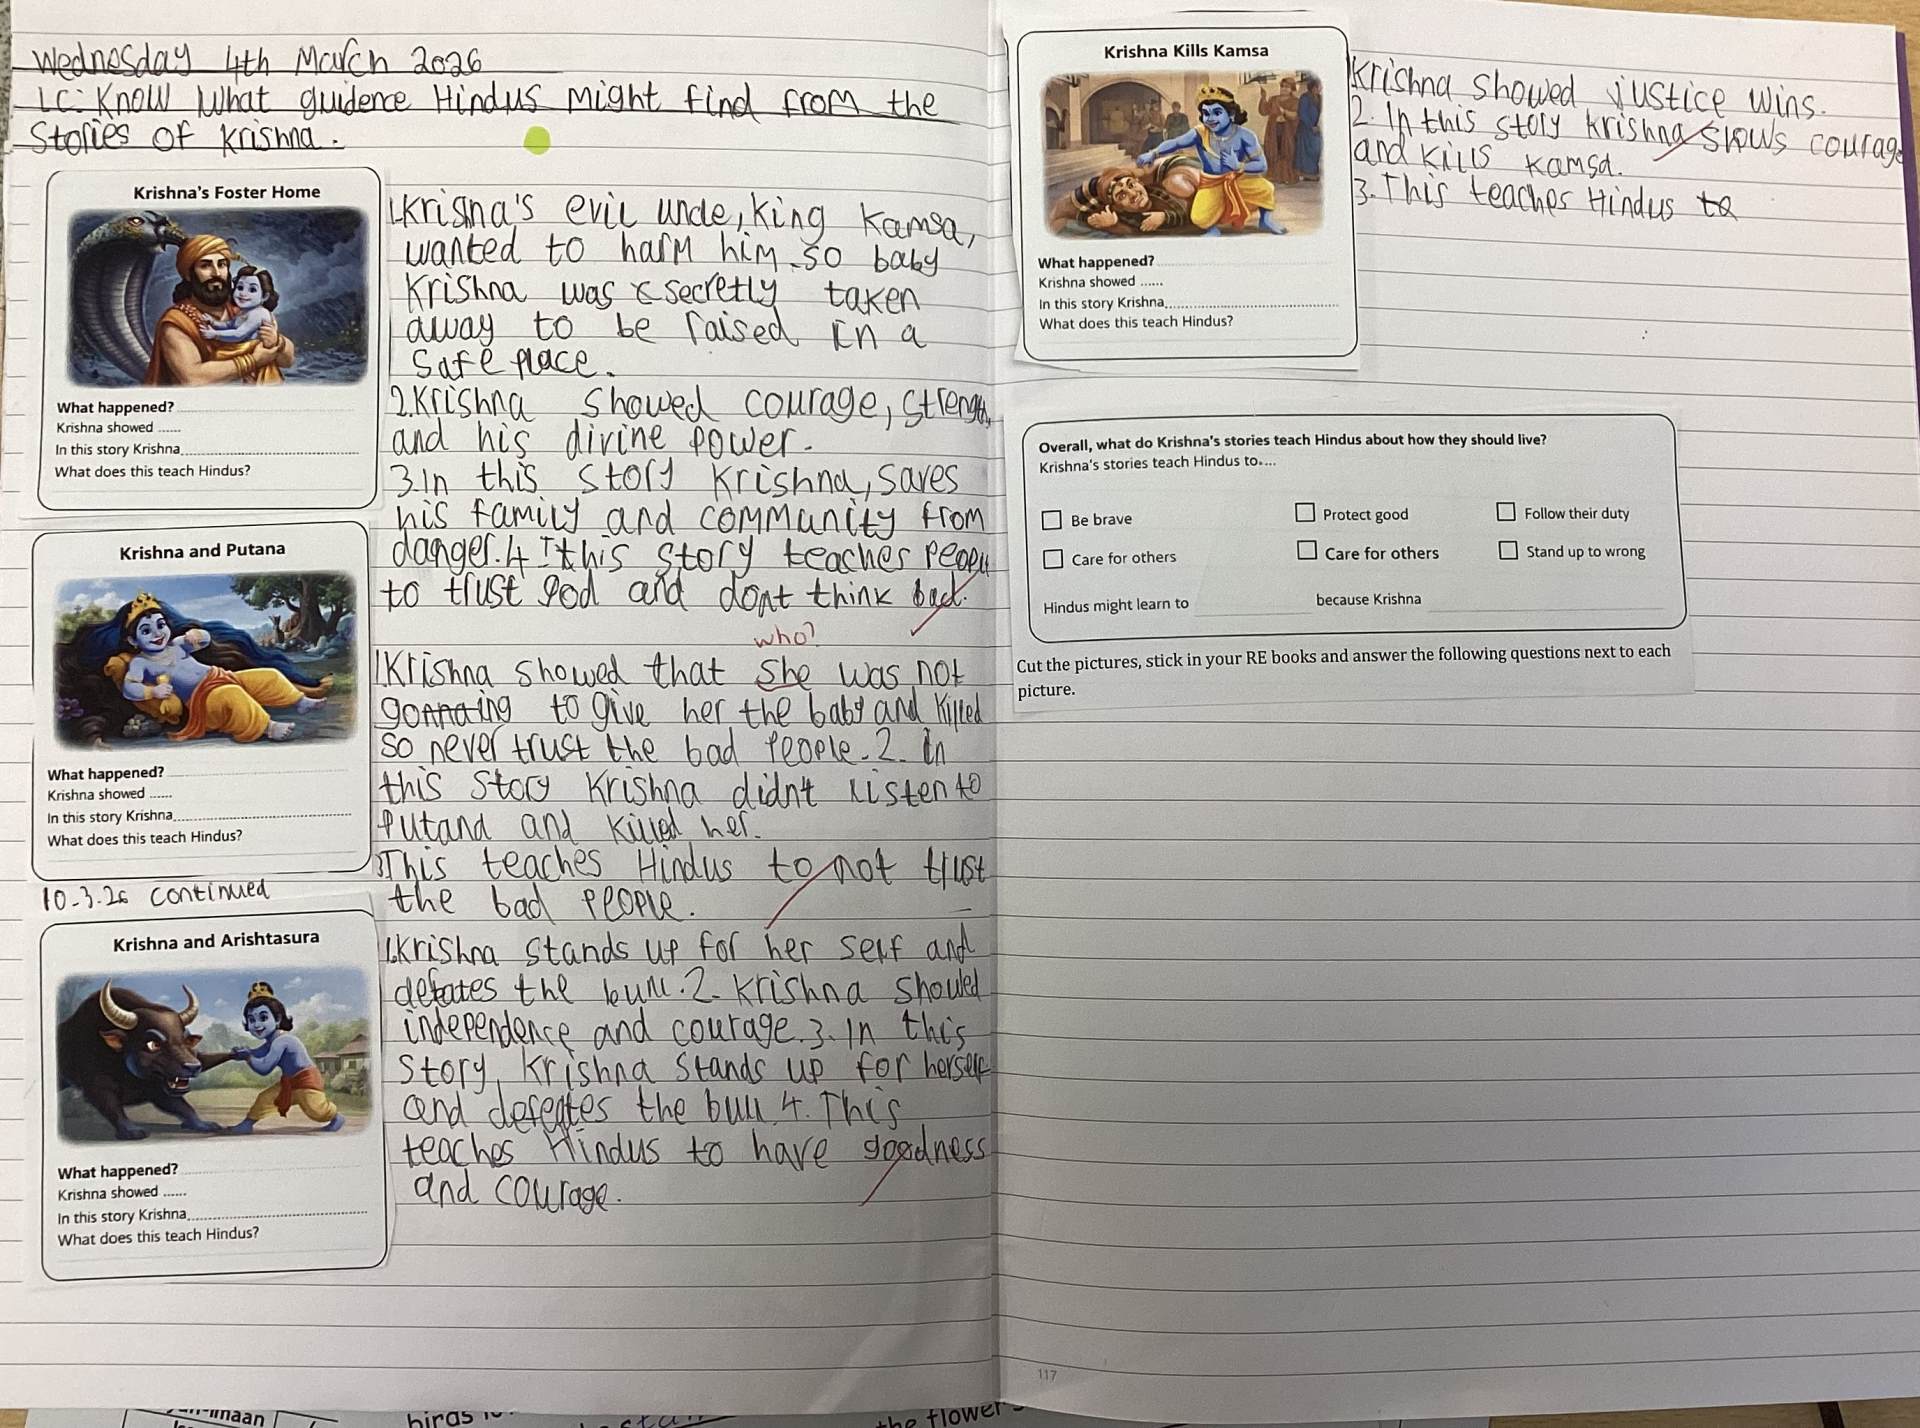 Wednesday 4th March 2026
LC: Know what guidence Hindus might find from the
Stories of Krishna.
Krishna's Foster Home
What happened?
Krishna showed ......
In this story Krishna
What does this teach Hindus?
1.Krishna's evil uncle, King Kamsa,
wanted to harm him. so baby
Krishna was secretly taken
away to be raised in a
safe place.
2.Krishna showed courage, strength,
and his divine power.
3.In this story Krishna, saves
his family and community from
danger. 4 this story teaches people
to trust god and dont think bad.
Krishna and Putana
What happened?
Krishna showed ......
In this story Krishna
What does this teach Hindus?
who?
1.Krishna showed that she was not
gonnaing to give her the baby and killed
so never trust the bad people. 2. in
this story Krishna didn't listen to
Putana and killed her.
3This teaches Hindus to not trust
the bad people.
10.3.26 continued
Krishna and Arishtasura
What happened?
Krishna showed ......
In this story Krishna
What does this teach Hindus?
1.Krishna stands up for her self and
defeates the bull. 2. Krishna showed
independence and courage. 3. In this
story, Krishna stands up for herself
and defeates the bull 4. This
teaches Hindus to have goodness
and courage.
Krishna Kills Kamsa
What happened?
Krishna showed ......
In this story Krishna
What does this teach Hindus?
Krishna showed justice wins.
2. In this story Krishna shows courage
and kills Kamsa.
3. This teaches Hindus to
Overall, what do Krishna's stories teach Hindus about how they should live?
Krishna's stories teach Hindus to....
Be brave
Protect good
Follow their duty
Care for others
Care for others
Stand up to wrong
Hindus might learn to because Krishna
Cut the pictures, stick in your RE books and answer the following questions next to each
picture.
117
birds
the flower